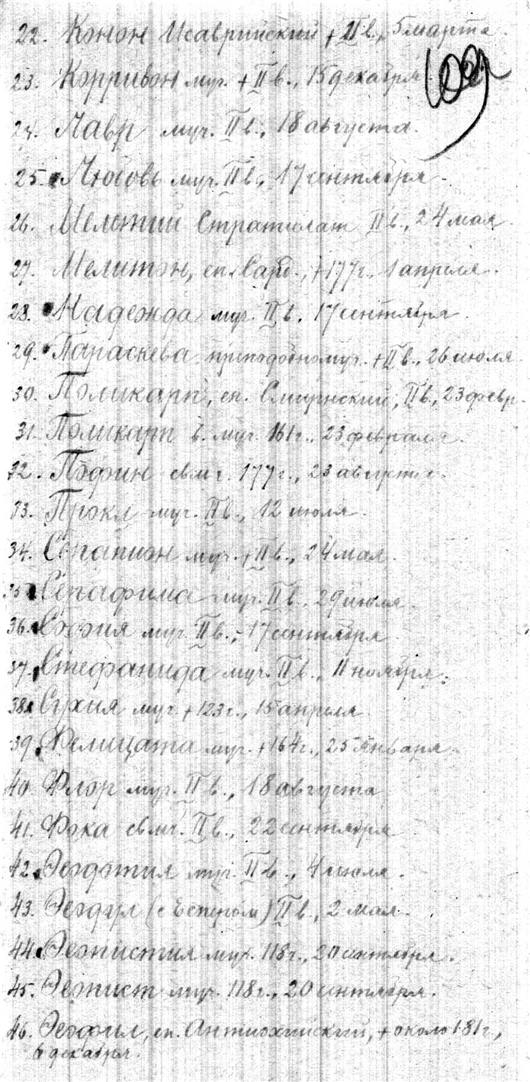 22. Конон Исаврийский, + II в., 5 марта
23. Корривон муч. + II в., 15 декабря
24. Лавр муч. II в., 18 августа.
25. Любовь муч. II в., 17 сентября.
26. Мелетий Стратилат II в., 24 мая
27. Мелитон, еп. Сард., +177 г. 1 апреля.
28. Надежда муч. II в. 17 сентября.
29. Параскева преподобномуч. + II в., 26 июля.
30. Поликарп, еп. Смирнский, II в., 23 февр.
31. Поликарп муч. 161 г., 23 февраля.
32. Пофин свмч. 177 г., 23 августа.
33. Прокл муч. II в., 12 июля.
34. Серапион муч. + II в., 24 мая.
35. Серафима муч. II в. 29 июля.
36. София муч. II в., 17 сентября
37. Стефанида муч. II в., 11 ноября.
38. Сухия муч. + 123 г., 15 апреля.
39. Фелицата муч. +164 г., 25 января.
40. Флор муч. II в., 18 августа
41. Фока свмч. II в., 22 сентября
42. Феодотия муч. II в., 4 июля.
43. Феодул (с Еспером) II в., 2 мая.
44. Феопистия муч. 118 г., 20 сентября.
45. Феопист муч. 118 г., 20 сентября.
46. Феофил, еп. Антиохийский, + около 181 г.,
6 декабря.